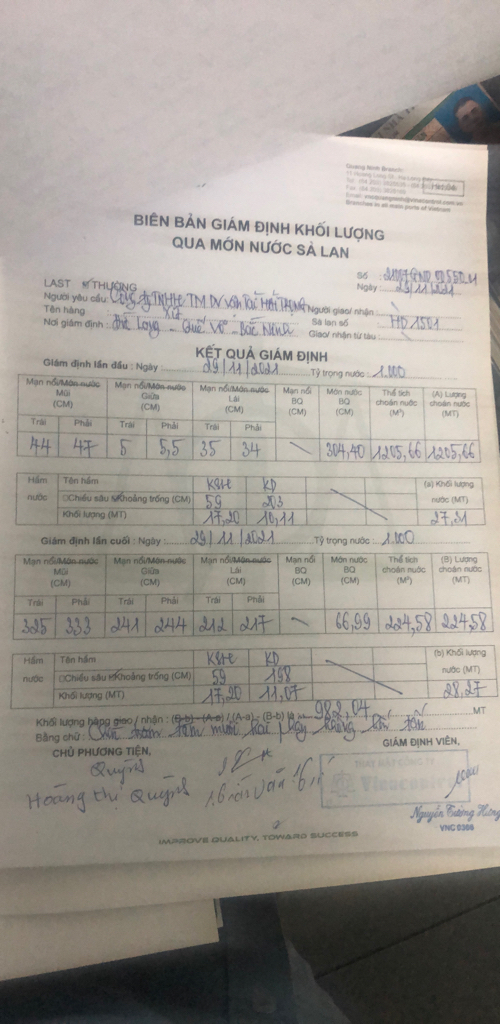 Quang Ninh Branch
Branches in all main ports of Vietnam
BIÊN BẢN GIÁM ĐỊNH KHỐI LƯỢNG
QUA MỚN NƯỚC SÀ LAN
Số :
Ngày : 29/11/2021
LAST THƯỜNG
Người yêu cầu: Công ty TNHH TM DV Vận Tải Người giao/ nhận
Tên hàng Sà lan số : HD 1501
Nơi giám định : Quế Võ - Bắc Ninh Giao/ nhận từ tàu :
KẾT QUẢ GIÁM ĐỊNH
Giám định lần đầu : Ngày : 29/11/2021 Tỷ trọng nước : 1.000
Mạn nổi/Mớn nước Mũi (CM) Mạn nổi/Mớn nước Giữa (CM) Mạn nổi/Mớn nước Lái (CM) Mạn nổi BQ (CM) Mớn nước BQ (CM) Thể tích choán nước (M³) (A) Lượng choán nước (MT)
Trái Phải Trái Phải Trái Phải
44 47 5 5,5 35 34 304,40 1205,66 1205,66
Hầm nước Tên hầm KD (a) Khối lượng nước (MT)
Chiều sâu Khoảng trống (CM) 59 203
Khối lượng (MT) 17,20 10,11 27,31
Giám định lần cuối : Ngày : 29/11/2021 Tỷ trọng nước : 1.000
Mạn nổi/Mớn nước Mũi (CM) Mạn nổi/Mớn nước Giữa (CM) Mạn nổi/Mớn nước Lái (CM) Mạn nổi BQ (CM) Mớn nước BQ (CM) Thể tích choán nước (M³) (B) Lượng choán nước (MT)
Trái Phải Trái Phải Trái Phải
325 333 241 244 212 217 66,99 224,58 224,58
Hầm nước Tên hầm KD (b) Khối lượng nước (MT)
Chiều sâu Khoảng trống (CM) 59 198
Khối lượng (MT) 17,20 11,07 28,27
Khối lượng hàng giao / nhận : (B-b) - (A-a) / (A-a) - (B-b) là 982,04 MT
Bằng chữ : Chín trăm tám mươi hai phẩy không bốn tấn
CHỦ PHƯƠNG TIỆN, GIÁM ĐỊNH VIÊN,
Quỳnh
Hoàng Thị Quỳnh
Vinacontrol
Nguyễn Tường Hưng
VNC 0366
IMPROVE QUALITY, TOWARD SUCCESS